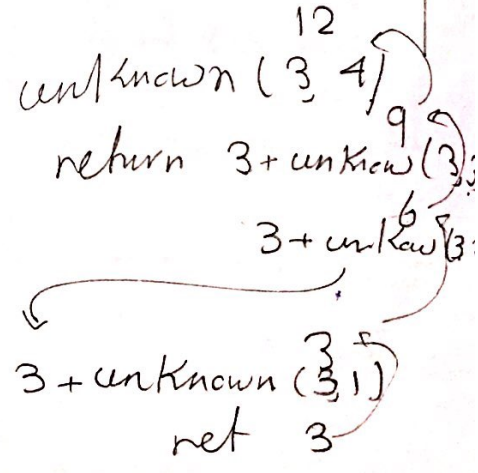 12
unknown (3, 4)
9
return 3 + unknow (3,
6
3 + unkow (3
3
3 + unknown (3,1)
ret 3